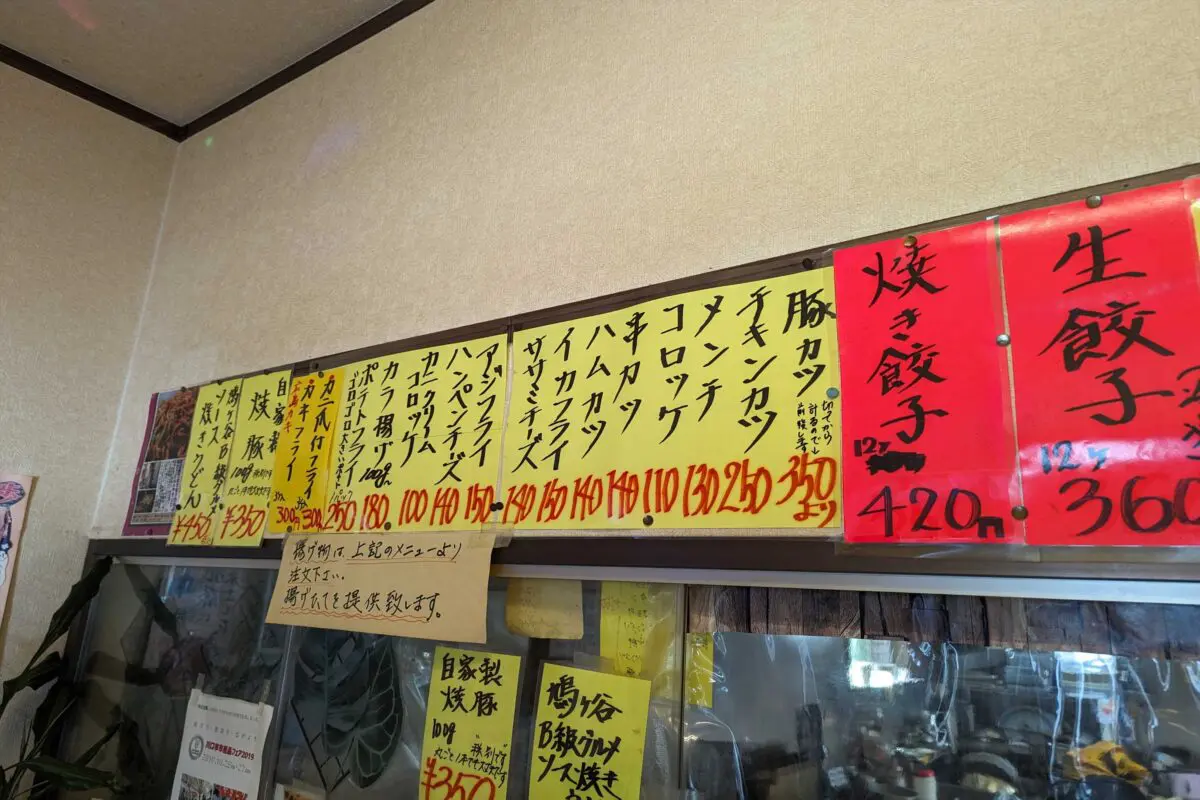 生餃子
12ヶ
360
焼き餃子
12ヶ
420円
豚カツ
切ってから
計るので
前後します
350より
チキンカツ
250
メンチ
130
コロッケ
110
串カツ
140
ハムカツ
140
イカフライ
150
ササミチーズ
140
アジフライ
150
ハンペンチーズ
140
カニクリーム
コロッケ
100
カラ揚げ100g
180
ポテトフライ
ゴロゴロ大きい
250
カニ爪付フライ
300円
広島カキ
カキフライ
300円
自家製
焼豚
100g
¥350
鳩ヶ谷B級グルメ
ソース
焼きうどん
¥450
揚げ物は上記のメニューより
注文下さい。
揚げたてを提供致します。
自家製
焼豚
100g
丸ごと1本でも大丈夫です
¥350
鳩ヶ谷
B級グルメ
ソース焼き
川口市市産品フェア2019